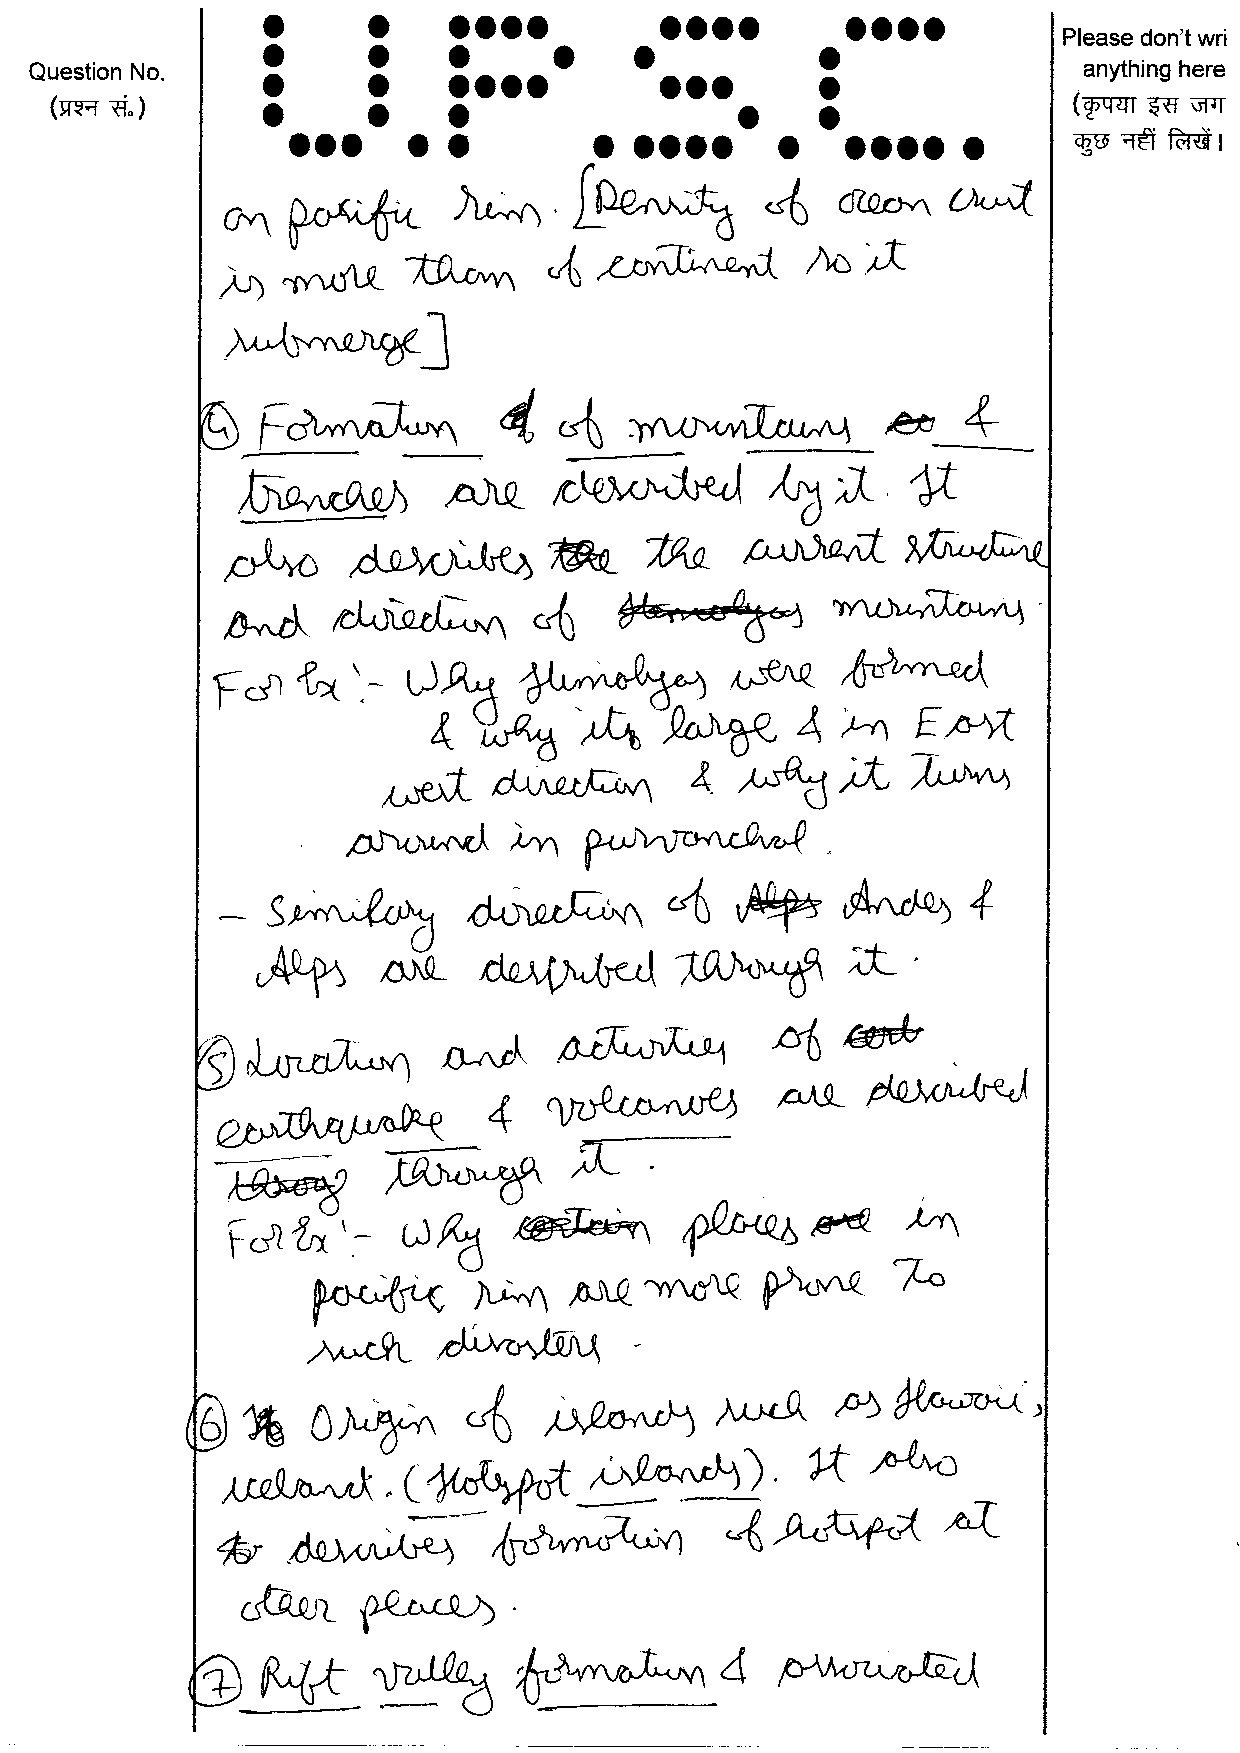 Question No.
(प्रश्न सं.)
U.P.S.C.
Please don't wri
anything here
(कृपया इस जग
कुछ नहीं लिखें।
on pacific rim. [Density of ocean crust
is more than of continent so it
submerge]
④ Formation of mountains &
trenches are described by it. It
also describes the current structure
and direction of mountains.
For Ex:- Why Himalyas were formed
& why its large & in East
west direction & why it turns
around in purvanchal.
- Similary direction of Andes &
Alps are described through it.
⑤ Location and activities of
earthquake & volcanoes are described
through it.
For Ex:- Why places in
pacific rim are more prone to
such disasters.
⑥ Origin of islands such as Hawaii,
iceland. (Hotspot islands). It also
describes formation of hotspot at
other places.
⑦ Rift valley formation & associated